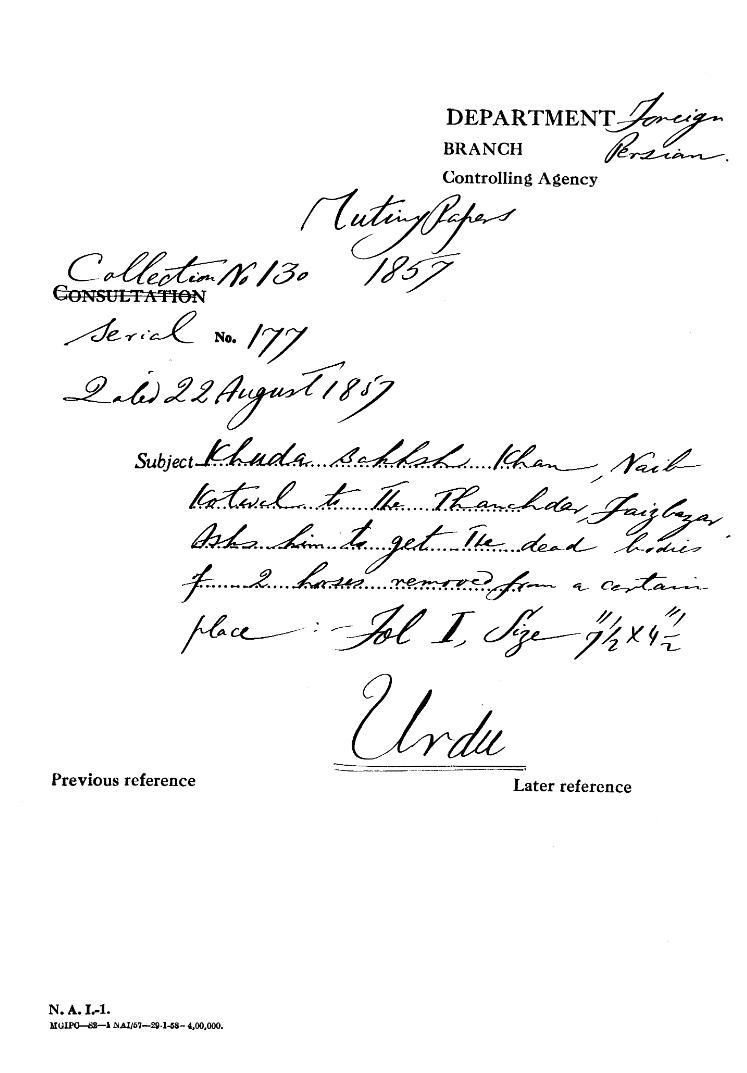 DEPARTMENT Foreign
BRANCH Persian.
Controlling Agency
Mutiny Papers
Collection No 130 1857
CONSULTATION
Serial No. 177
Dated 22 August 1857
Subject Khuda Bakhsh Khan, Naib
Kotwal to the Thanehdar, Faizbazar
Asks him to get the dead bodies
of 2 horses removed from a certain
place :- Fol I, Size 7½" X 4½"
Urdu
Previous reference
Later reference
N. A. I.-1.
MGIPO—S2—1 NAI/57—29-1-58—4,00,000.